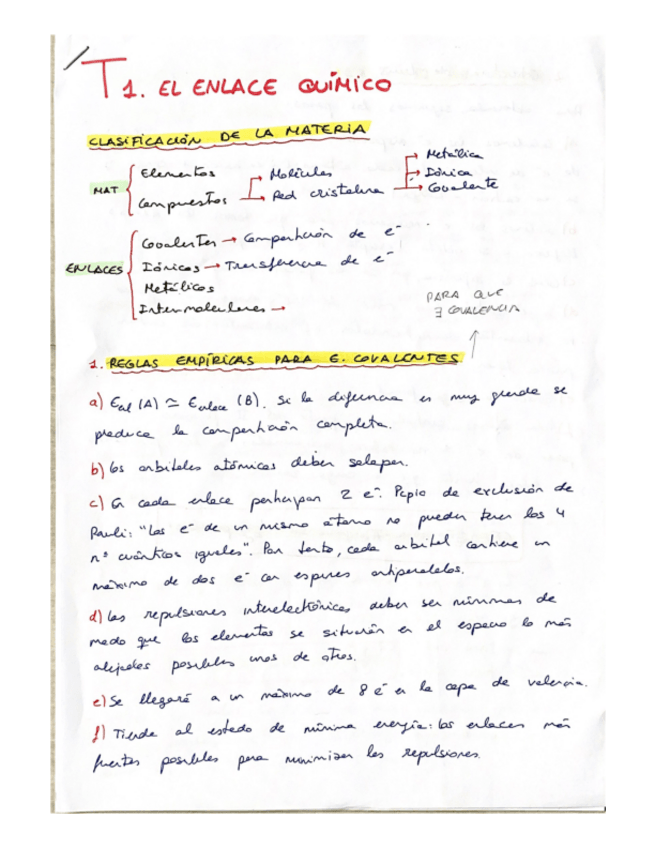 T1. EL ENLACE QUÍMICO
CLASIFICACIÓN DE LA MATERIA
MAT { Elementos
Compuestos → Moléculas
→ Red cristalina → Metálica
→ Iónica
→ Covalente
ENLACES { Covalentes → Compartición de e⁻
Iónicos → Transferencia de e⁻
Metálicos
Intermoleculares →
PARA QUE
∃ COVALENCIA
1. REGLAS EMPÍRICAS PARA E. COVALENTES
a) (A) ≃ Enlace (B). Si la diferencia es muy grande se
produce la compartición completa.
b) los orbitales atómicos deben solapar.
c) En cada enlace participan 2 e⁻. Ppio de exclusión de
Pauli: "Los e⁻ de un mismo átomo no pueden tener los 4
nº cuánticos iguales". Por tanto, cada orbital contiene un
máximo de dos e⁻ con espines antiparalelos.
d) Las repulsiones interelectrónicas deben ser mínimas de
modo que los elementos se situarán en el espacio lo más
alejados posibles unos de otros.
e) Se llegará a un máximo de 8 e⁻ en la capa de valencia.
f) Tiende al estado de mínima energía: los enlaces más
fuertes posibles para minimizar las repulsiones.